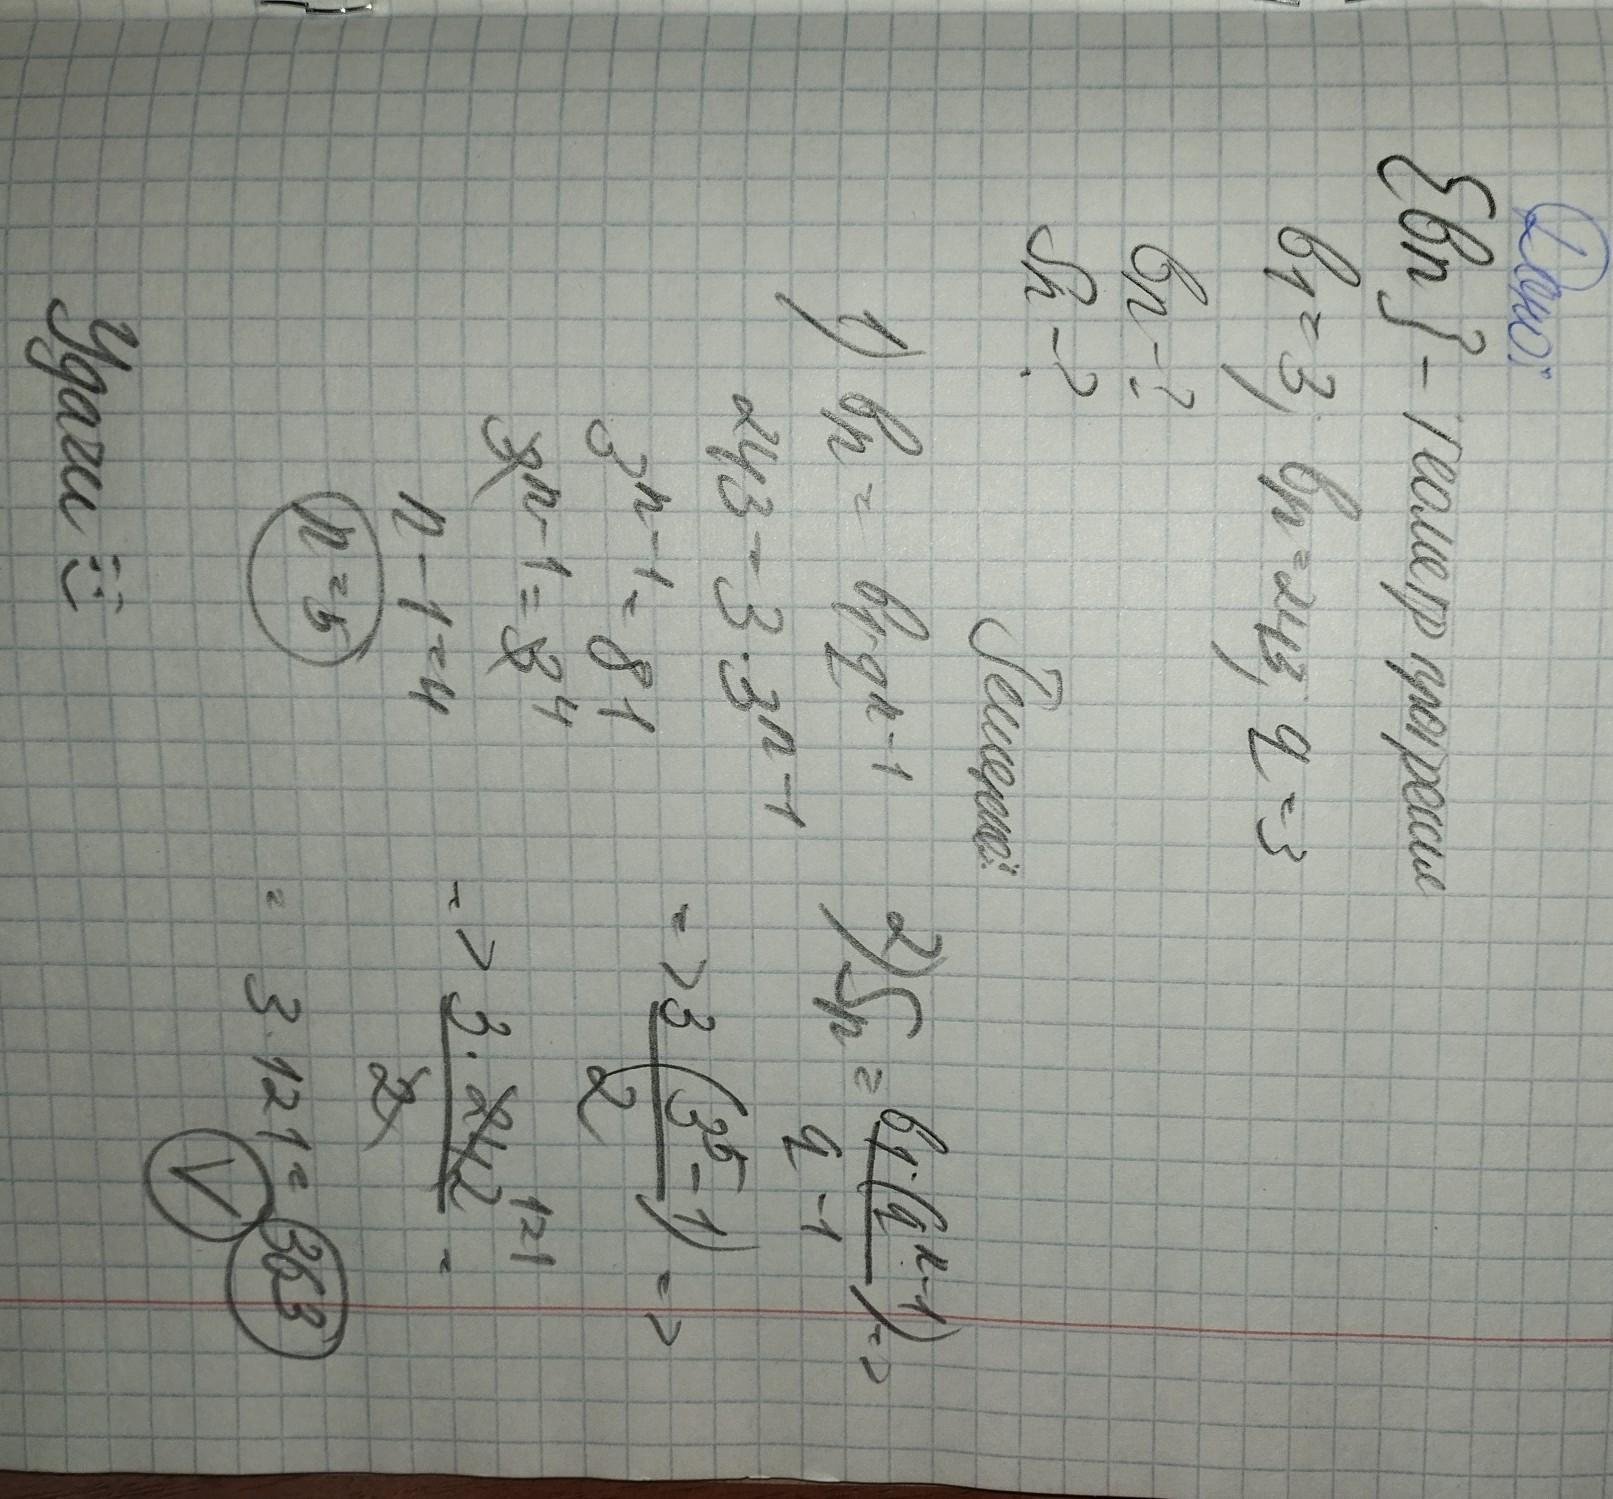 Дано:
{bn} - геометр прогрессия
b1 = 3, bn = 243, q = 3
bn - ?
Sn - ?
Решение:
1) bn = b1·q^n-1
243 = 3·3^n-1
3^n-1 = 81
3^n-1 = 3^4
n - 1 = 4
n = 5
2) Sn = b1·(q^n - 1) / q - 1 =>
=> 3(3^5 - 1) / 2 =>
=> 3·242 / 2 =
121
= 3·121 = 363
V
Удачи :)